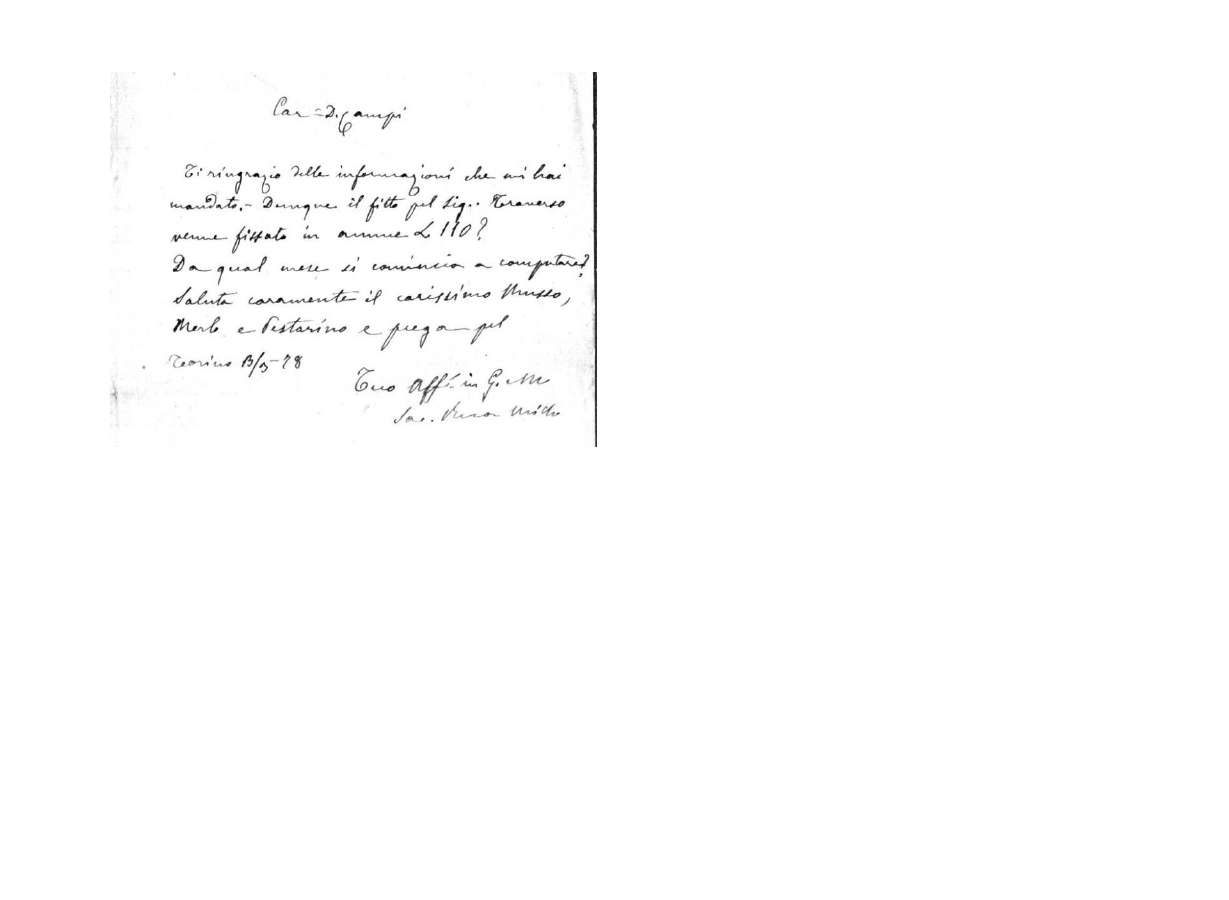 Car = D. Campi
Ti ringrazio delle informazioni che mi hai
mandato. - Dunque il fitto pel Sig.. Traverso
venne fissato in annue L 110?
Da qual mese si comincia a computare?
Saluta caramente il carissimo Musso,
Merlo e Pestarino e prega pel
Torino 13/5-78
Tuo Aff. in G. e M
Sac. Rua